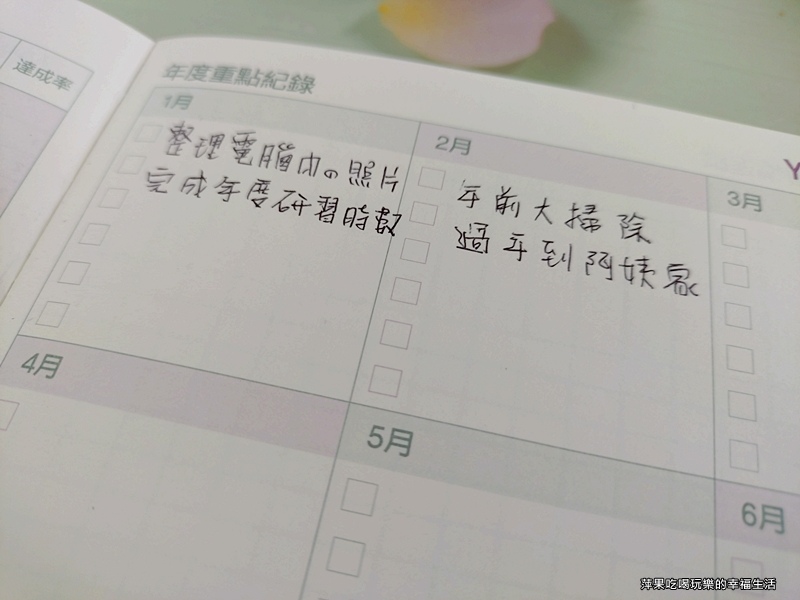 達成率
年度重點紀錄
1月
整理電腦內の照片
完成年度研習時數
2月
年前大掃除
過年到阿姨家
Y
3月
4月
5月
6月
萍果吃喝玩樂的幸福生活